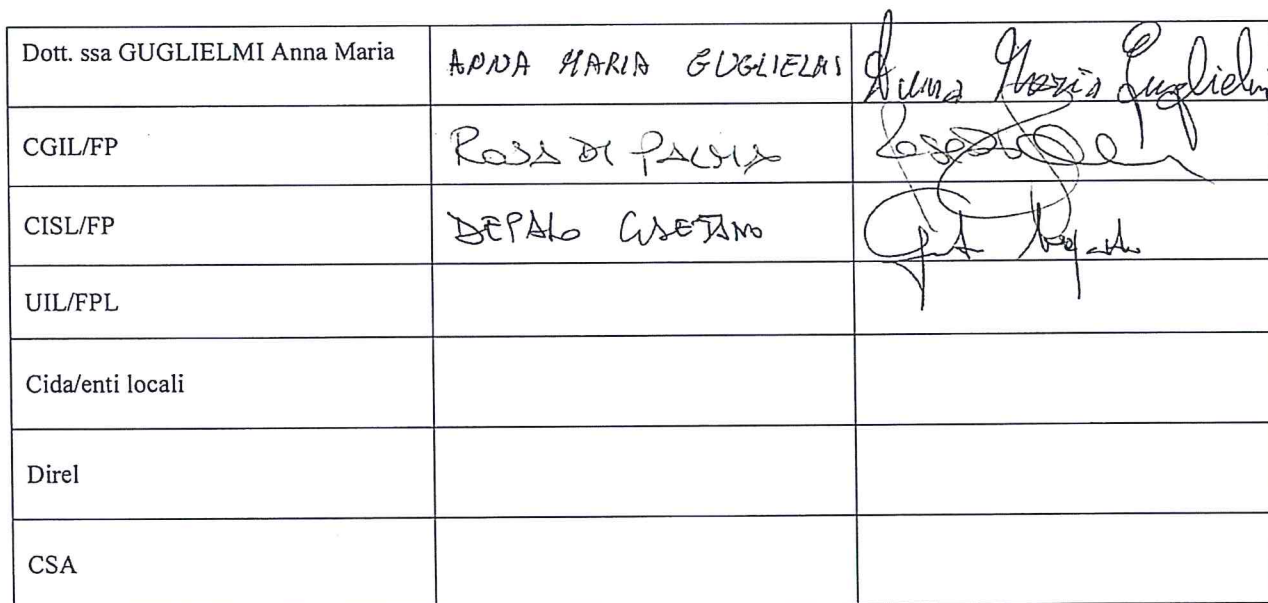 Dott. ssa GUGLIELMI Anna Maria ANNA MARIA GUGLIELMI Anna Maria Guglielmi
CGIL/FP ROSA DI PALMA
CISL/FP DEPALO GAETANO
UIL/FPL
Cida/enti locali
Direl
CSA